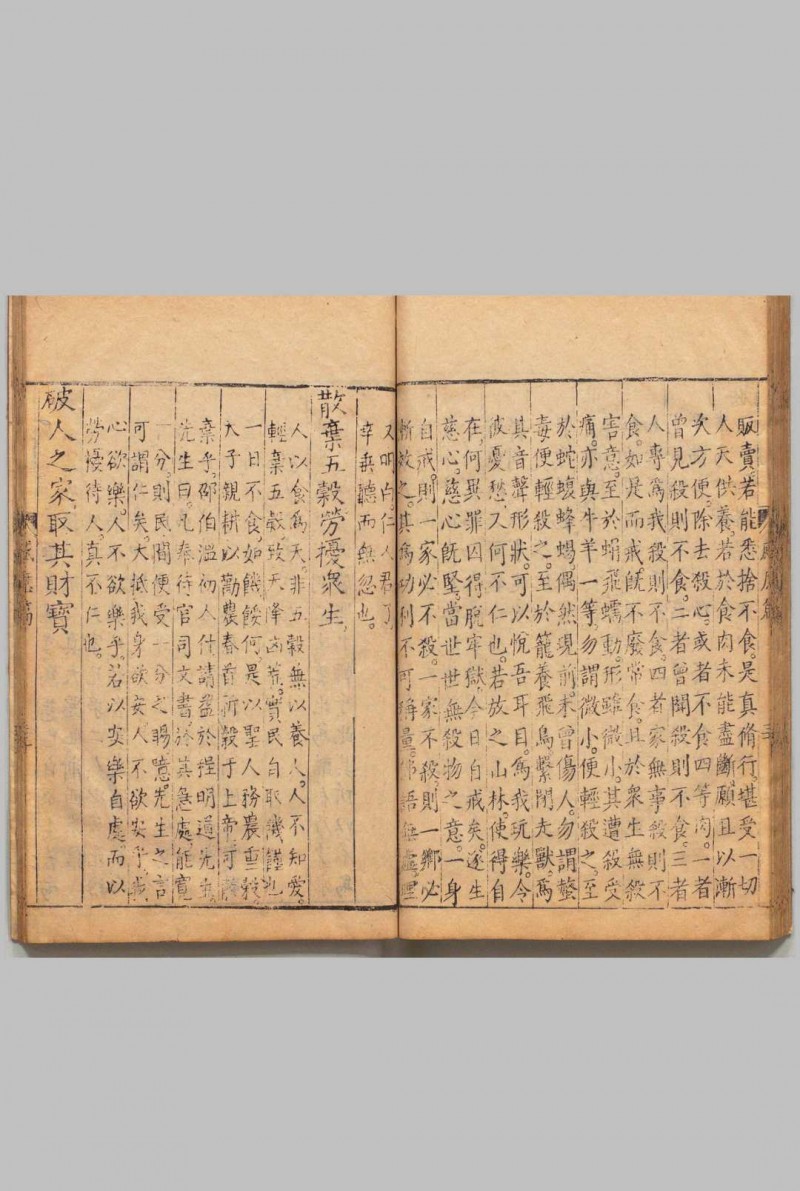 販賣。若能悉捨不食。是真脩行。堪受一切
人天供養。若於食肉未能盡斷。願且以漸
次方便。除去殺心。或者不食四等肉。一者
曾見殺則不食。二者曾聞殺則不食。三者
人專為我殺則不食。四者家無事殺則不
食。如是而戒旣不廢常食。且於衆生無殺
害意。至於蜎飛蠕動。形雖微小。其遭殺受
痛。亦與牛羊一等。勿謂微小。便輕殺之。至
於蛇蠍蜂蝎。偶然現前。未曾傷人。勿謂螫
毒便輕殺之。至於籠養飛鳥。繫閉走獸。為
其音聲形狀。可以悅吾耳目。為我玩樂。令
彼憂愁。又何不仁也。若放之山林。使得自
在。何異罪囚得脫牢獄。今日自戒矣。逐生
慈心。慈心旣堅。當世世無殺物之意。一身
自戒。則一家必不殺。一家不殺。則一鄉必
漸放之。其為功利。不可稱量。吾無虛
又明白。仁人君子
幸垂聽而無忽也。
散棄五穀勞擾衆生
人以食為天。非五穀無以養人。人不知愛。
輕棄五穀。致天降凶荒。實民自取饑饉也
一日不食。如饑餒何。是以聖人務農重穀。
天子親耕以勸農。春首祈穀于上帝。可
棄乎。邵伯溫初入仕。請益於程明道先生。
先生曰。凡奉待官司文書。於其急處。能寬
一分。則民間便受一分之賜。噫。先生之言
可謂仁矣。大抵我身欲安。人不欲安乎。我
心欲樂。人不欲樂乎。若以安樂自處。而以
勞擾待人。真不仁也。
破人之家取其財寶